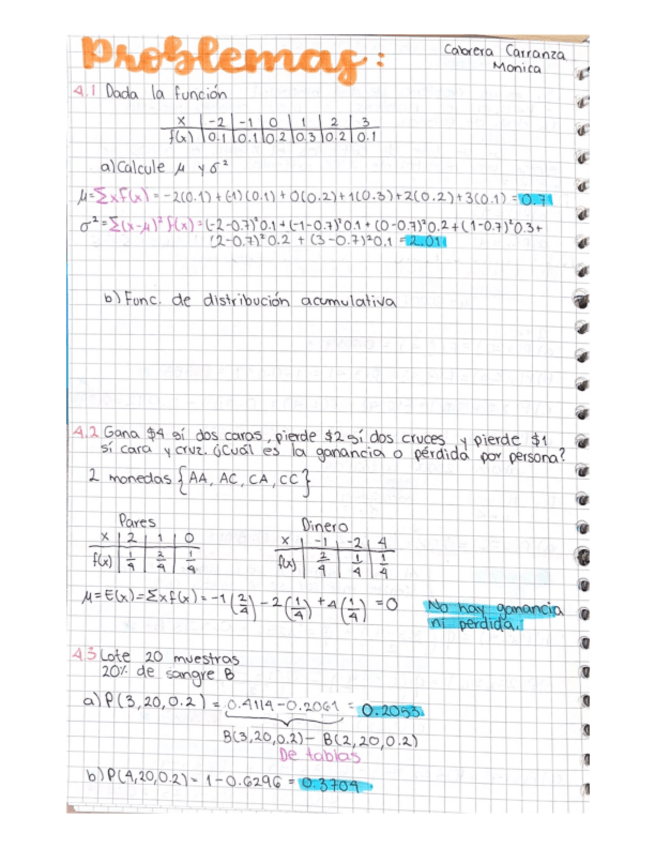 Problemas:
Cabrera Carranza
Monica
4.1 Dada la función
x | -2 | -1 | 0 | 1 | 2 | 3
f(x) | 0.1 | 0.1 | 0.2 | 0.3 | 0.2 | 0.1
a) Calcule μ y σ²
μ=Σxf(x) = -2(0.1)+(-1)(0.1)+0(0.2)+1(0.3)+2(0.2)+3(0.1) = 0.71
σ²=Σ(x-μ)²f(x)=(-2-0.7)²0.1+(-1-0.7)²0.1+(0-0.7)²0.2+(1-0.7)²0.3+
(2-0.7)²0.2 + (3-0.7)²0.1 = 2.01
b) Func. de distribución acumulativa
4.2 Gana $4 sí dos caras, pierde $2 sí dos cruces y pierde $1
sí cara y cruz. ¿Cuál es la ganancia o pérdida por persona?
2 monedas {AA, AC, CA, CC}
Pares
x | 2 | 1 | 0
f(x) | 1/4 | 2/4 | 1/4
Dinero
x | -1 | -2 | 4
f(x) | 2/4 | 1/4 | 1/4
μ=E(x)=Σxf(x)=-1(2/4)-2(1/4)+4(1/4)=0
No hay ganancia
ni perdida.
4.3 Lote 20 muestras
20% de sangre B
a) P(3,20,0.2) = 0.4114-0.2061 = 0.2053
B(3,20,0.2)- B(2,20,0.2)
De tablas
b) P(4,20,0.2)= 1-0.6296 = 0.3704